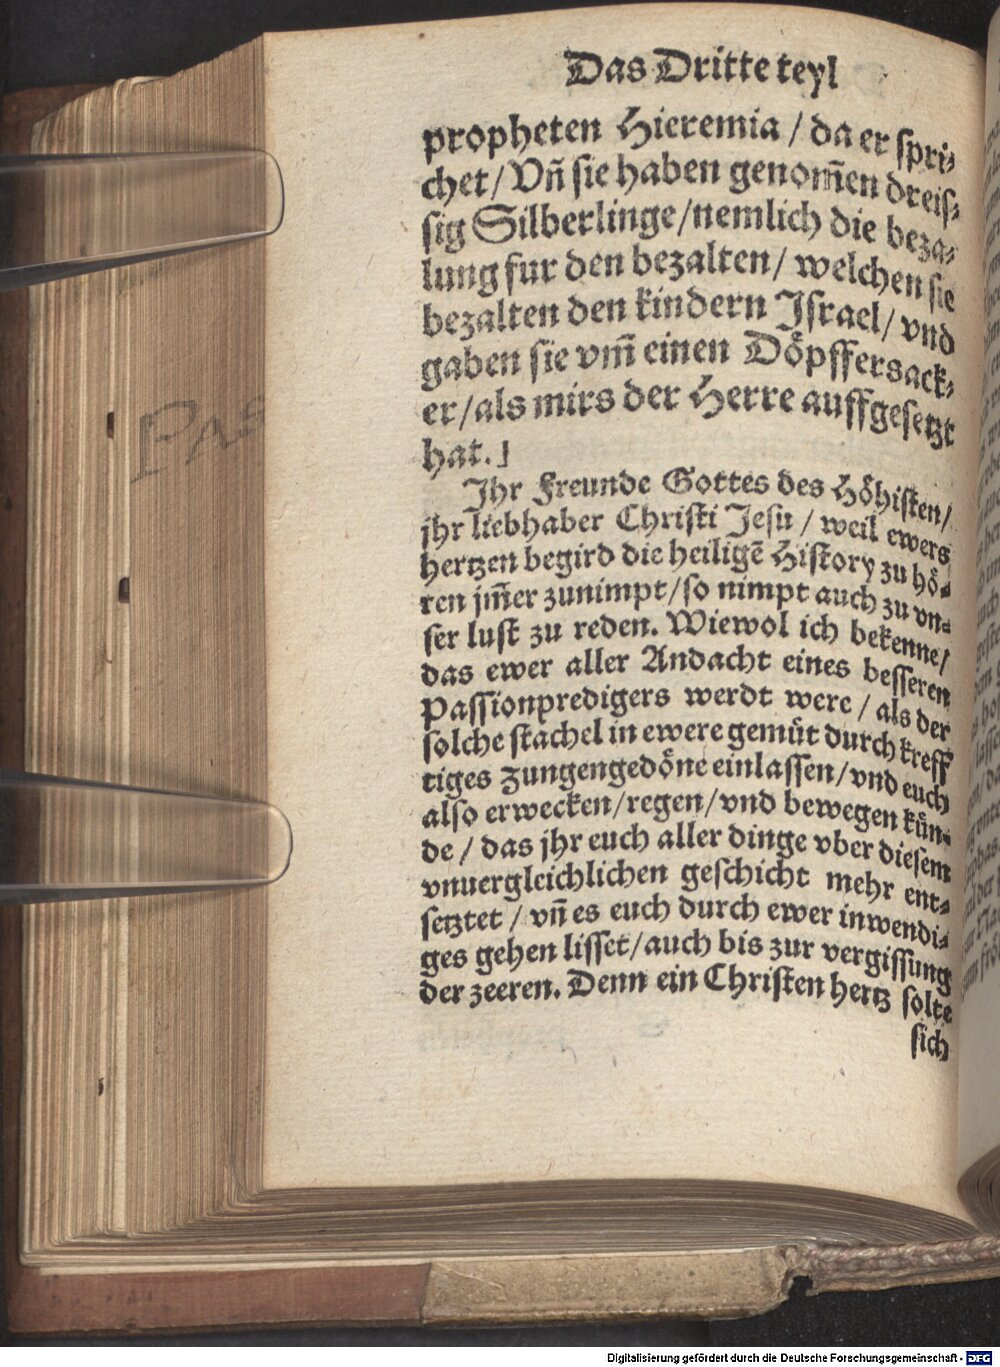 Das Dritte teyl
propheten Hieremia / da er spri⸗
chet / Vñ sie haben genom̃en dreis⸗
sig Silberlinge / nemlich die beza⸗
lung fur den bezalten / welchen sie
bezalten den kindern Israel / vnd
gaben sie vm̃ einen Döpffersack⸗
er / als mirs der Herre auffgesetzt
hat.⌋
Ihr Freunde Gottes des Höhisten /
jhr liebhaber Christi Jesu / weil ewers
hertzen begird die heiligẽ History zu hö⸗
ren jm̃er zunimpt / so nimpt auch zu vn⸗
ser lust zu reden. Wiewol ich bekenne /
das ewer aller Andacht eines besseren
Passionpredigers werdt were / als der
solche stachel in ewere gemüt durch kreff
tiges zungengedöne einlassen / vnd euch
also erwecken / regen / vnd bewegen kün⸗
de / das jhr euch aller dinge vber diesem
vnuergleichlichen geschicht mehr ent⸗
setztet / vñ es euch durch ewer inwendi⸗
ges gehen lisset / auch bis zur vergissung
der zeeren. Denn ein Christen hertz solte
sich
PAS
Digitalisierung gefördert durch die Deutsche Forschungsgemeinschaft - DFG